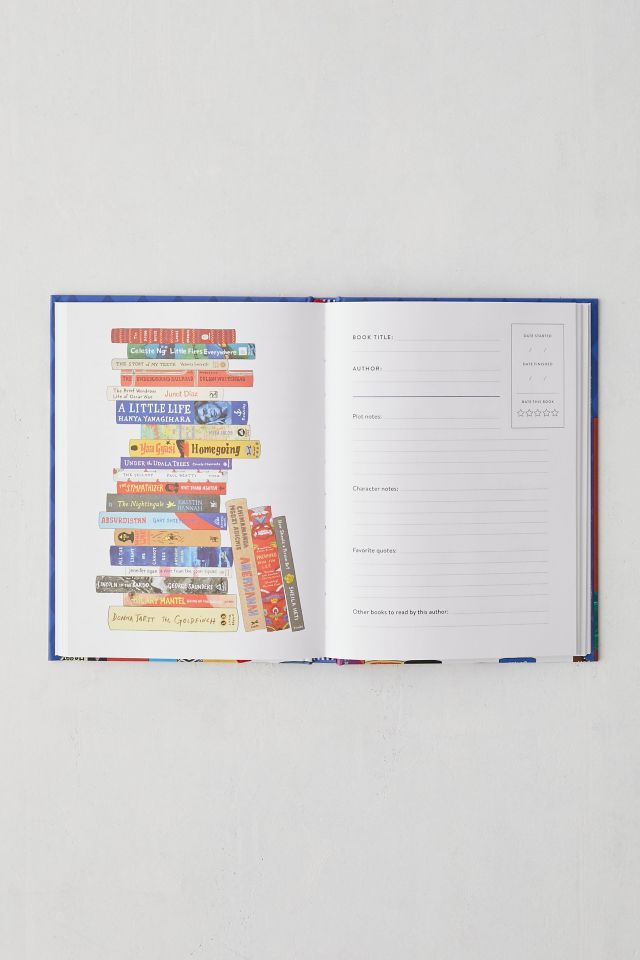 Celeste Ng Little Fires Everywhere
THE STORY OF MY TEETH
THE UNDERGROUND RAILROAD COLSON WHITEHEAD
The Brief Wondrous
Life of Oscar Wao Junot Díaz
A LITTLE LIFE
HANYA YANAGIHARA
Yaa Gyasi Homegoing
UNDER THE UDALA TREES
THE SELLOUT PAUL BEATTY
THE SYMPATHIZER
The Nightingale KRISTIN
HANNAH
ABSURDISTAN
ALL THE LIGHT WE CANNOT SEE
jennifer egan a visit from the goon squad
LINCOLN IN THE BARDO GEORGE SAUNDERS
HILARY MANTEL
DONNA TARTT THE GOLDFINCH
CHIMAMANDA
NGOZI ADICHIE
AMERICANAH
How Should a Person Be?
SHEILA HETI
BOOK TITLE:
AUTHOR:
DATE STARTED
/ /
DATE FINISHED
/ /
RATE THIS BOOK
Plot notes:
Character notes:
Favorite quotes:
Other books to read by this author: